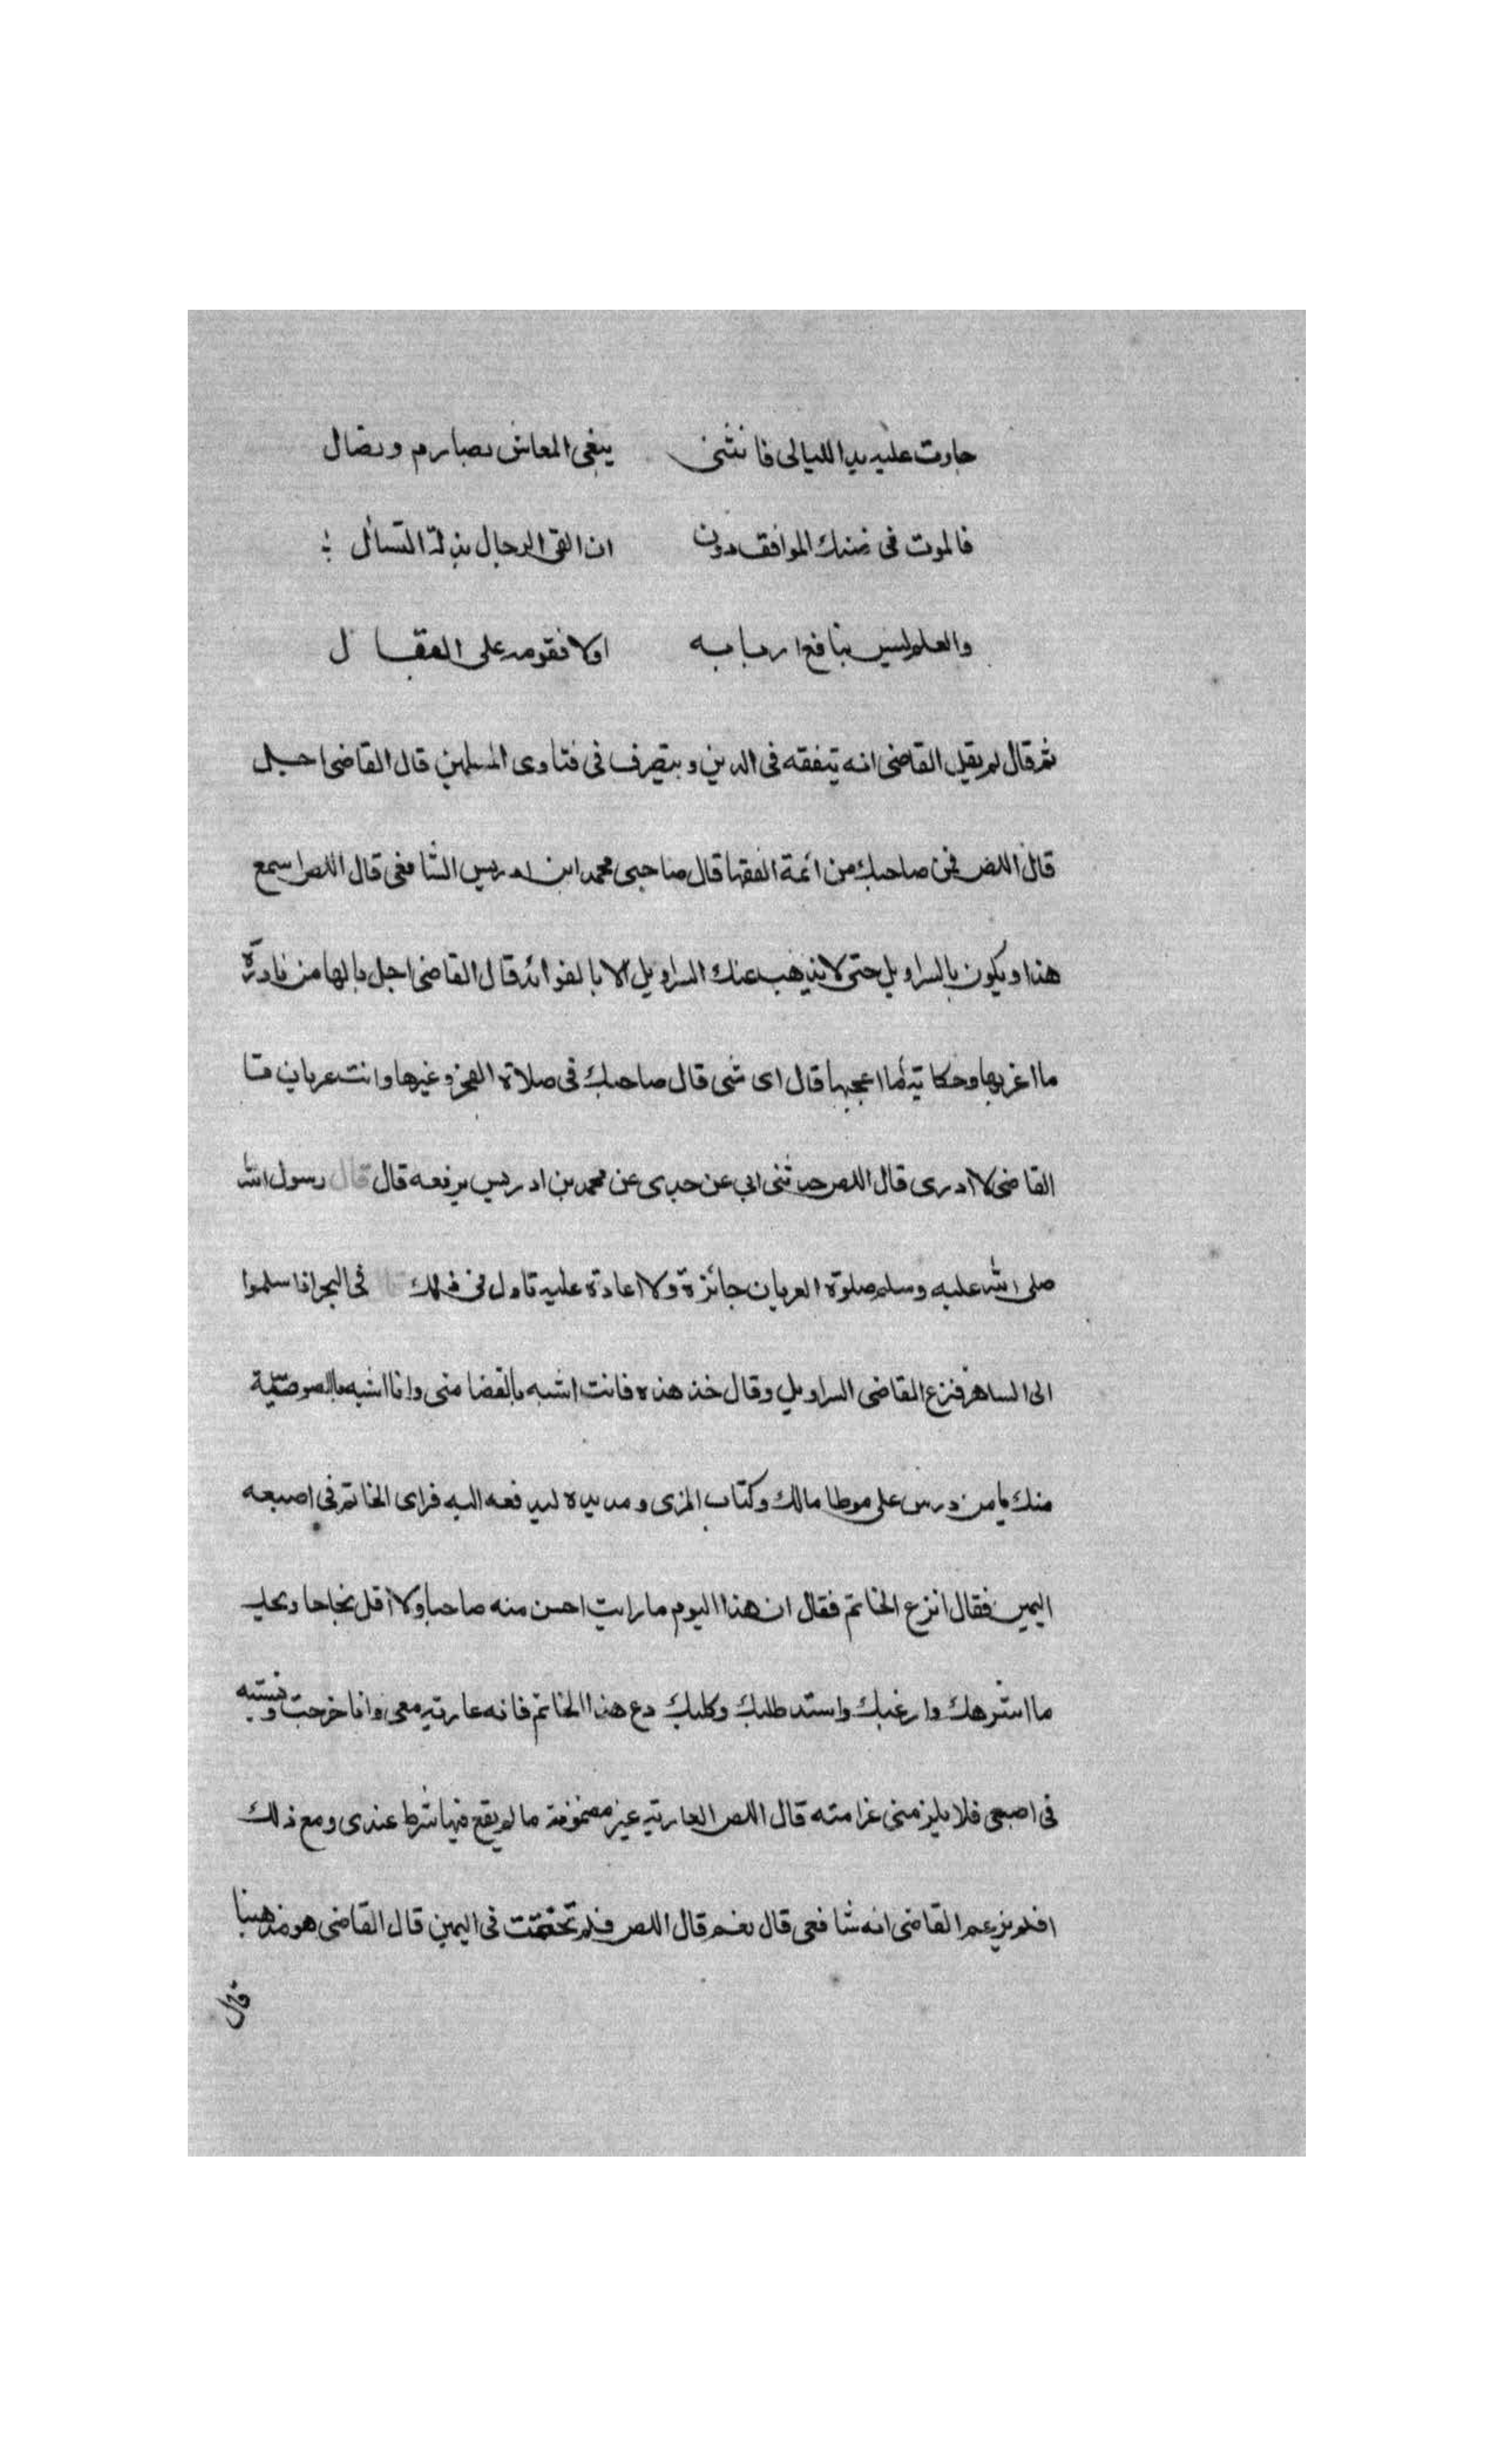 جارت عليه يد الليالى فانثنى يبغى المعاش بصارم ونضال
فالموت فى ضنك المواقف دون ان القى الرجال بذلة التسأل
والعلم ليس بنافع اربابه اولا فقومه على البقال
ثم قال لم يقل القاضى انه يتفقه فى الدين ويتصرف فى فتاوى المسلمين قال القاضى اجل
قال اللص فمن صاحبك من ائمة الفقها قال صاحبى محمد ابن ادريس الشافعى قال اللص اسمع
هذا ويكون بالسراويل حتى لا يذهب عنك السراويل الا بالفوائد قال القاضى اجل يا لها من نادرة
ما اغربها وحكاية ما اعجبها قال اى شى قال صاحبك فى صلاة الفجر وغيرها وانت عريان قا
القاضى لا ادرى قال اللص حدثنى ابى عن جدى عن محمد بن ادريس يرفعه قال قال رسول الله
صلى الله عليه وسلم صلوة العريان جائزة ولا اعادة عليه تاول فى ذلك فى البحر اذا سلموا
الى الساهر فنزع القاضى السراويل وقال خذ هذه فانت اشبه بالقضا منى وانا اشبه باللصوصية
منك يا من درس على موطا مالك وكتاب المزى ومد يده ليدفعه اليه فراى الخاتم فى اصبعه
اليمين فقال انزع الخاتم فقال ان هذا اليوم ما رايت احسن منه صاحبا ولا اقل نجاحا ويحك
ما اشرهك وارغبك واشد طلبك وكلبك دع هذا الخاتم فانه عارية معى وانا خرجت ونسيته
فى اصبعى فلا يلزمنى غرامته قال اللص العارية غير مضمونة ما لم يقع فيها شرط عندى ومع ذلك
افلم يزعم القاضى انه شافعى قال نعم قال اللص فلم تختمت فى اليمين قال القاضى هو مذهبنا
قال